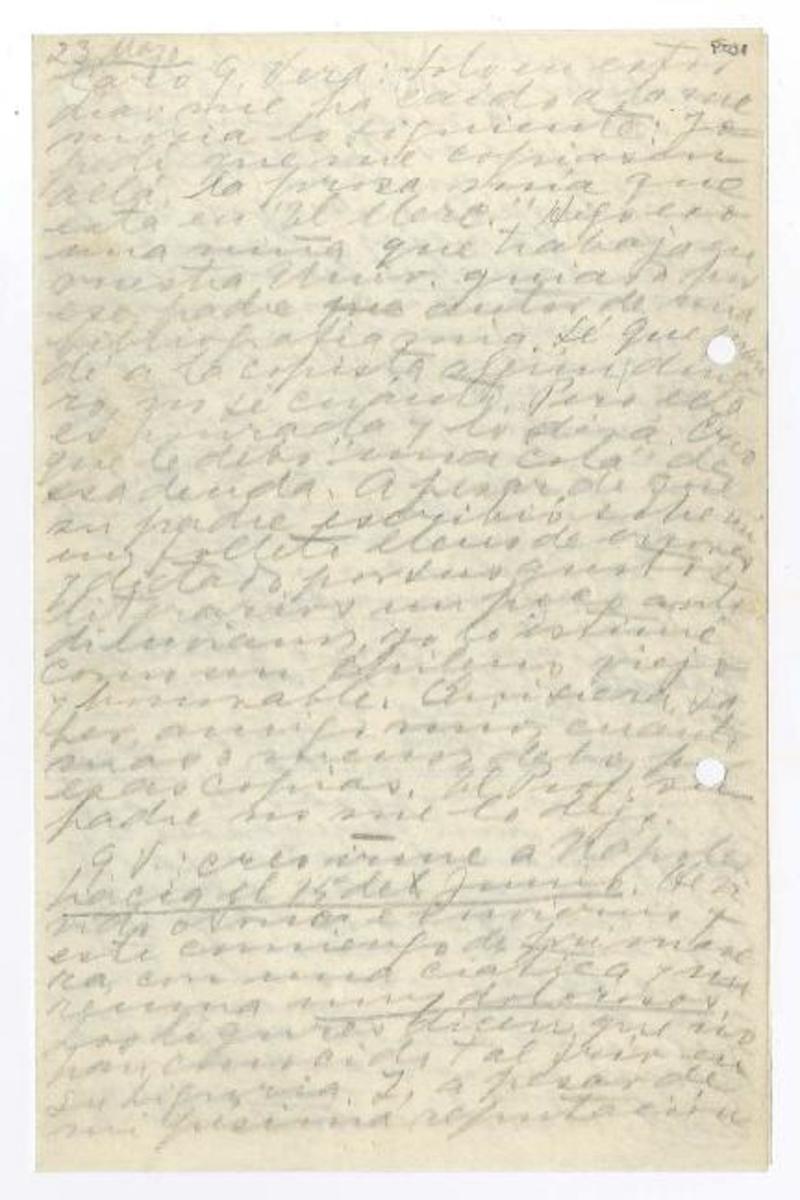 23 Mayo
Caro G. Vera: Solo en estos
días me ha caído a la me
moria lo siguiente: Yo
pedí que me copiasen
allá la prosa mía que
está en "El Merc." Hizo eso
una niña que trabaja en
nuestra Univ. guiada por
ese padre autor de una
bibliografía mía. Sé que man
dé a la copista algún dine
ro, no sé cuánto. Pero ella
es honrada y lo dirá. Creo
que le debo "una cola" de
esa deuda. A pesar de que
su padre escribió sobre mí
un folleto lleno de errores
y dictado por sus gustos
literarios un poco ante
diluvianos, yo lo estimé
como un chileno viejo
y honorable. Quisiera sa
ber, amigo mío, cuánto
mas o menos debo por
esas copias. El Prof. su
padre no me lo dijo.
G. V.: creo irme a Nápoles
hacia el 15 del Junio. He vi
vido otoño e invierno y
este comienzo de primave
ra con una ciática y un
reuma muy dolorosos.
Los ligures dicen que no
han conocido tal frío en
su Liguria. I, a pesar de
mi pésima reputación